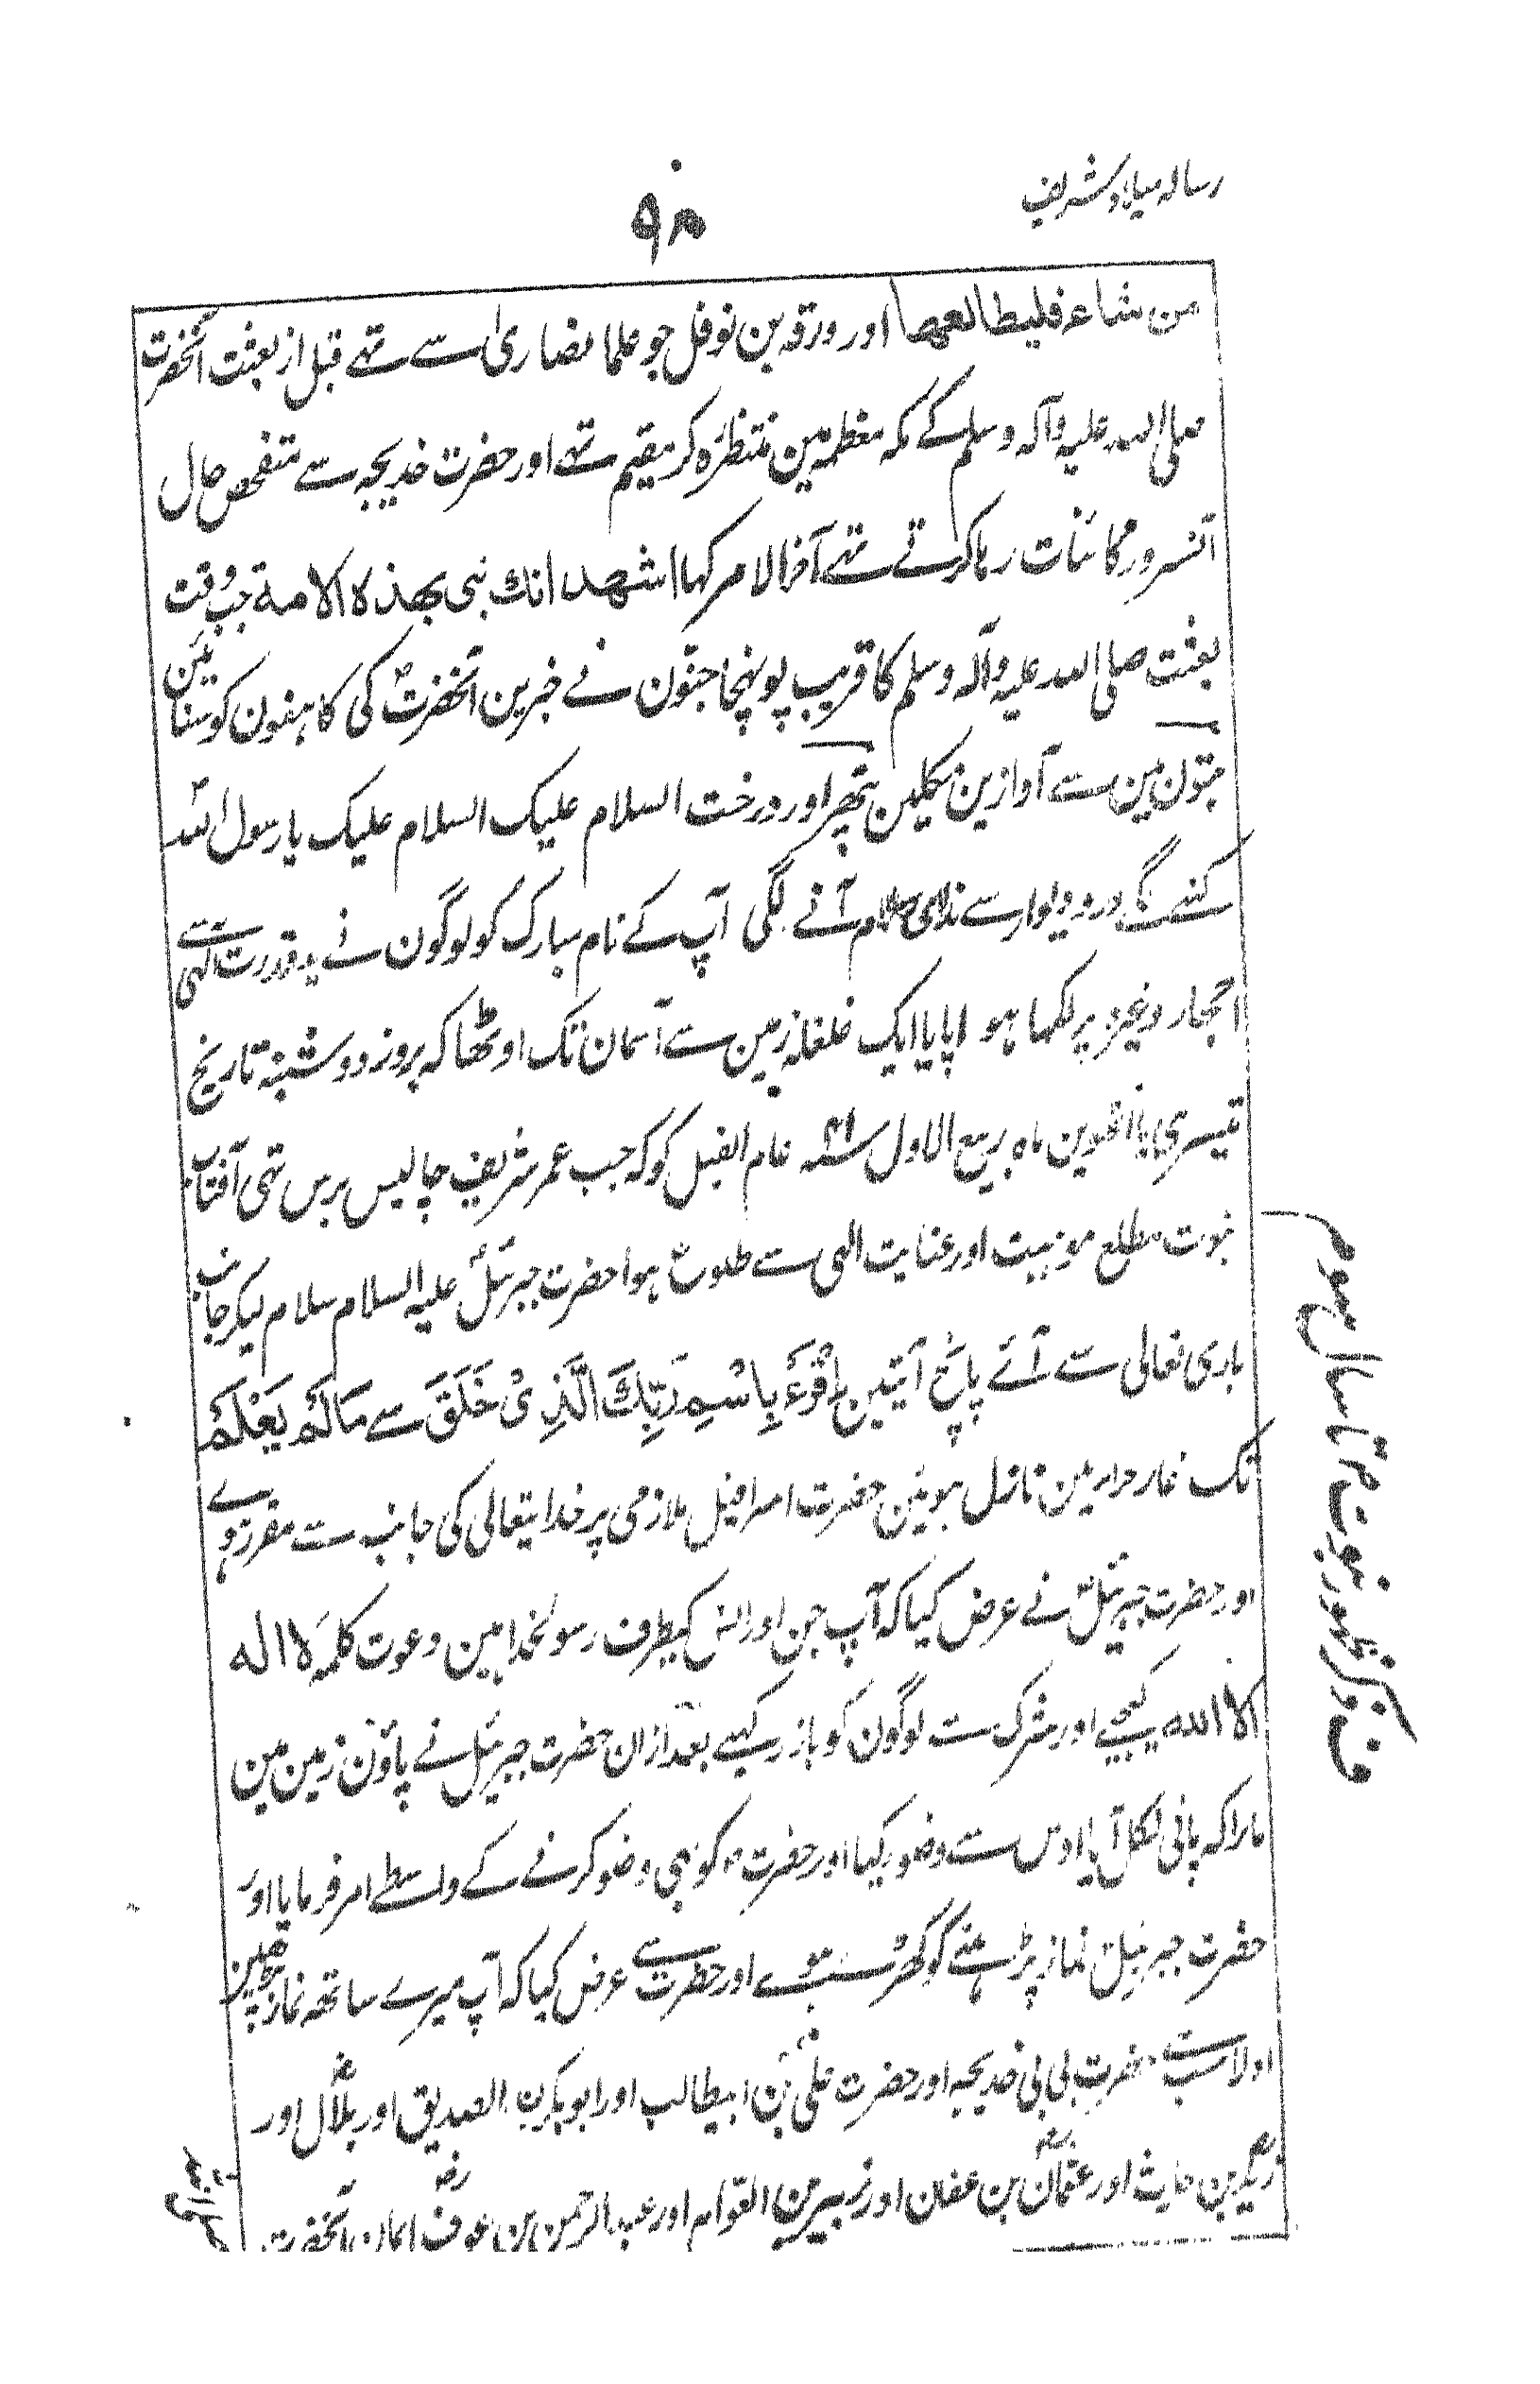 رساله میلاد شریف
۹۸
من شاء فلیطالعها اور ورقه بن نوفل جو علما نصاری سے تہے قبل از بعثت آنحضرت
صلی الله علیه وآله وسلم کے مکه معظمه مین منتظر ره کر مقیم تہے اور حضرت خدیجه سے متفحص حال
آنسرور کائنات رہا کرتے تہے آخر الامر کہا اشهد انك نبی بهذه الامة جب وقت
بعثت صلی الله علیه وآله وسلم کا قریب پونہچا جنّون نے خبرین آنحضرتؐ کی کاہنون کو سنائین
بتون مین سے آوازین نکلین پتھر اور درخت السلام علیک السلام علیک یا رسول الله
کہنے لگے در و دیوار سے ندای سلام آنے لگی آپ کے نام مبارک کو لوگون نے قدرت الہی سے
احجار وغیره پر لکہا ہوا پایا ایک غلغله زمین سے آسمان تک اوٹھا که بروز دوشنبه تاریخ
تیسری یا آٹھوین ماه ربیع الاول سنه ۴۱ عام الفیل کو که جب عمر شریف چالیس برس تہی آفتاب
نبوت مطلع موہبت اور عنایت الہی سے طلوع ہوا حضرت جبرئیلؑ علیه السلام سلام لیکر جانب
باری تعالی سے آئے پانچ آیتین اِقْرَءْ بِاسْمِ رَبِّكَ الَّذِیْ خَلَقَ سے مَا لَمْ یَعْلَمْ
تک غار حرا مین نازل ہوئین حضرت اسرافیل ملازمی پر خدایتعالی کی جانب سے مقرر ہوے
اور حضرت جبرئیلؑ نے عرض کیا که آپ جن اور انس کیطرف رسولخدا ہین دعوت کلمۂ لا اله
الا الله کیجیے اور شرک سے لوگون کو باز رکہیے بعد ازان حضرت جبرئیل نے پاؤن زمین مین
مارا که پانی نکل آیا اوس سے وضو کیا اور حضرت ؐ کو بہی وضو کرنے کے واسطے امر فرمایا اور
حضرت جبرئیل نماز پڑہنے کو کھڑے ہوے اور حضرت سے عرض کیا که آپ میرے ساتھه نماز پڑھین
اولا سب سے حضرت بی بی خدیجه اور حضرت علیؓ بن ابیطالب اور ابوبکر الصدیق اور بلالؓ اور
زیدؓ بن حارث اور عثمانؓ بن عفان اور زبیر بن العوام اور عبدالرحمن بن عوفؓ ایمان آنحضرت
ف ذکر ظهور نبوت تا سال سوم